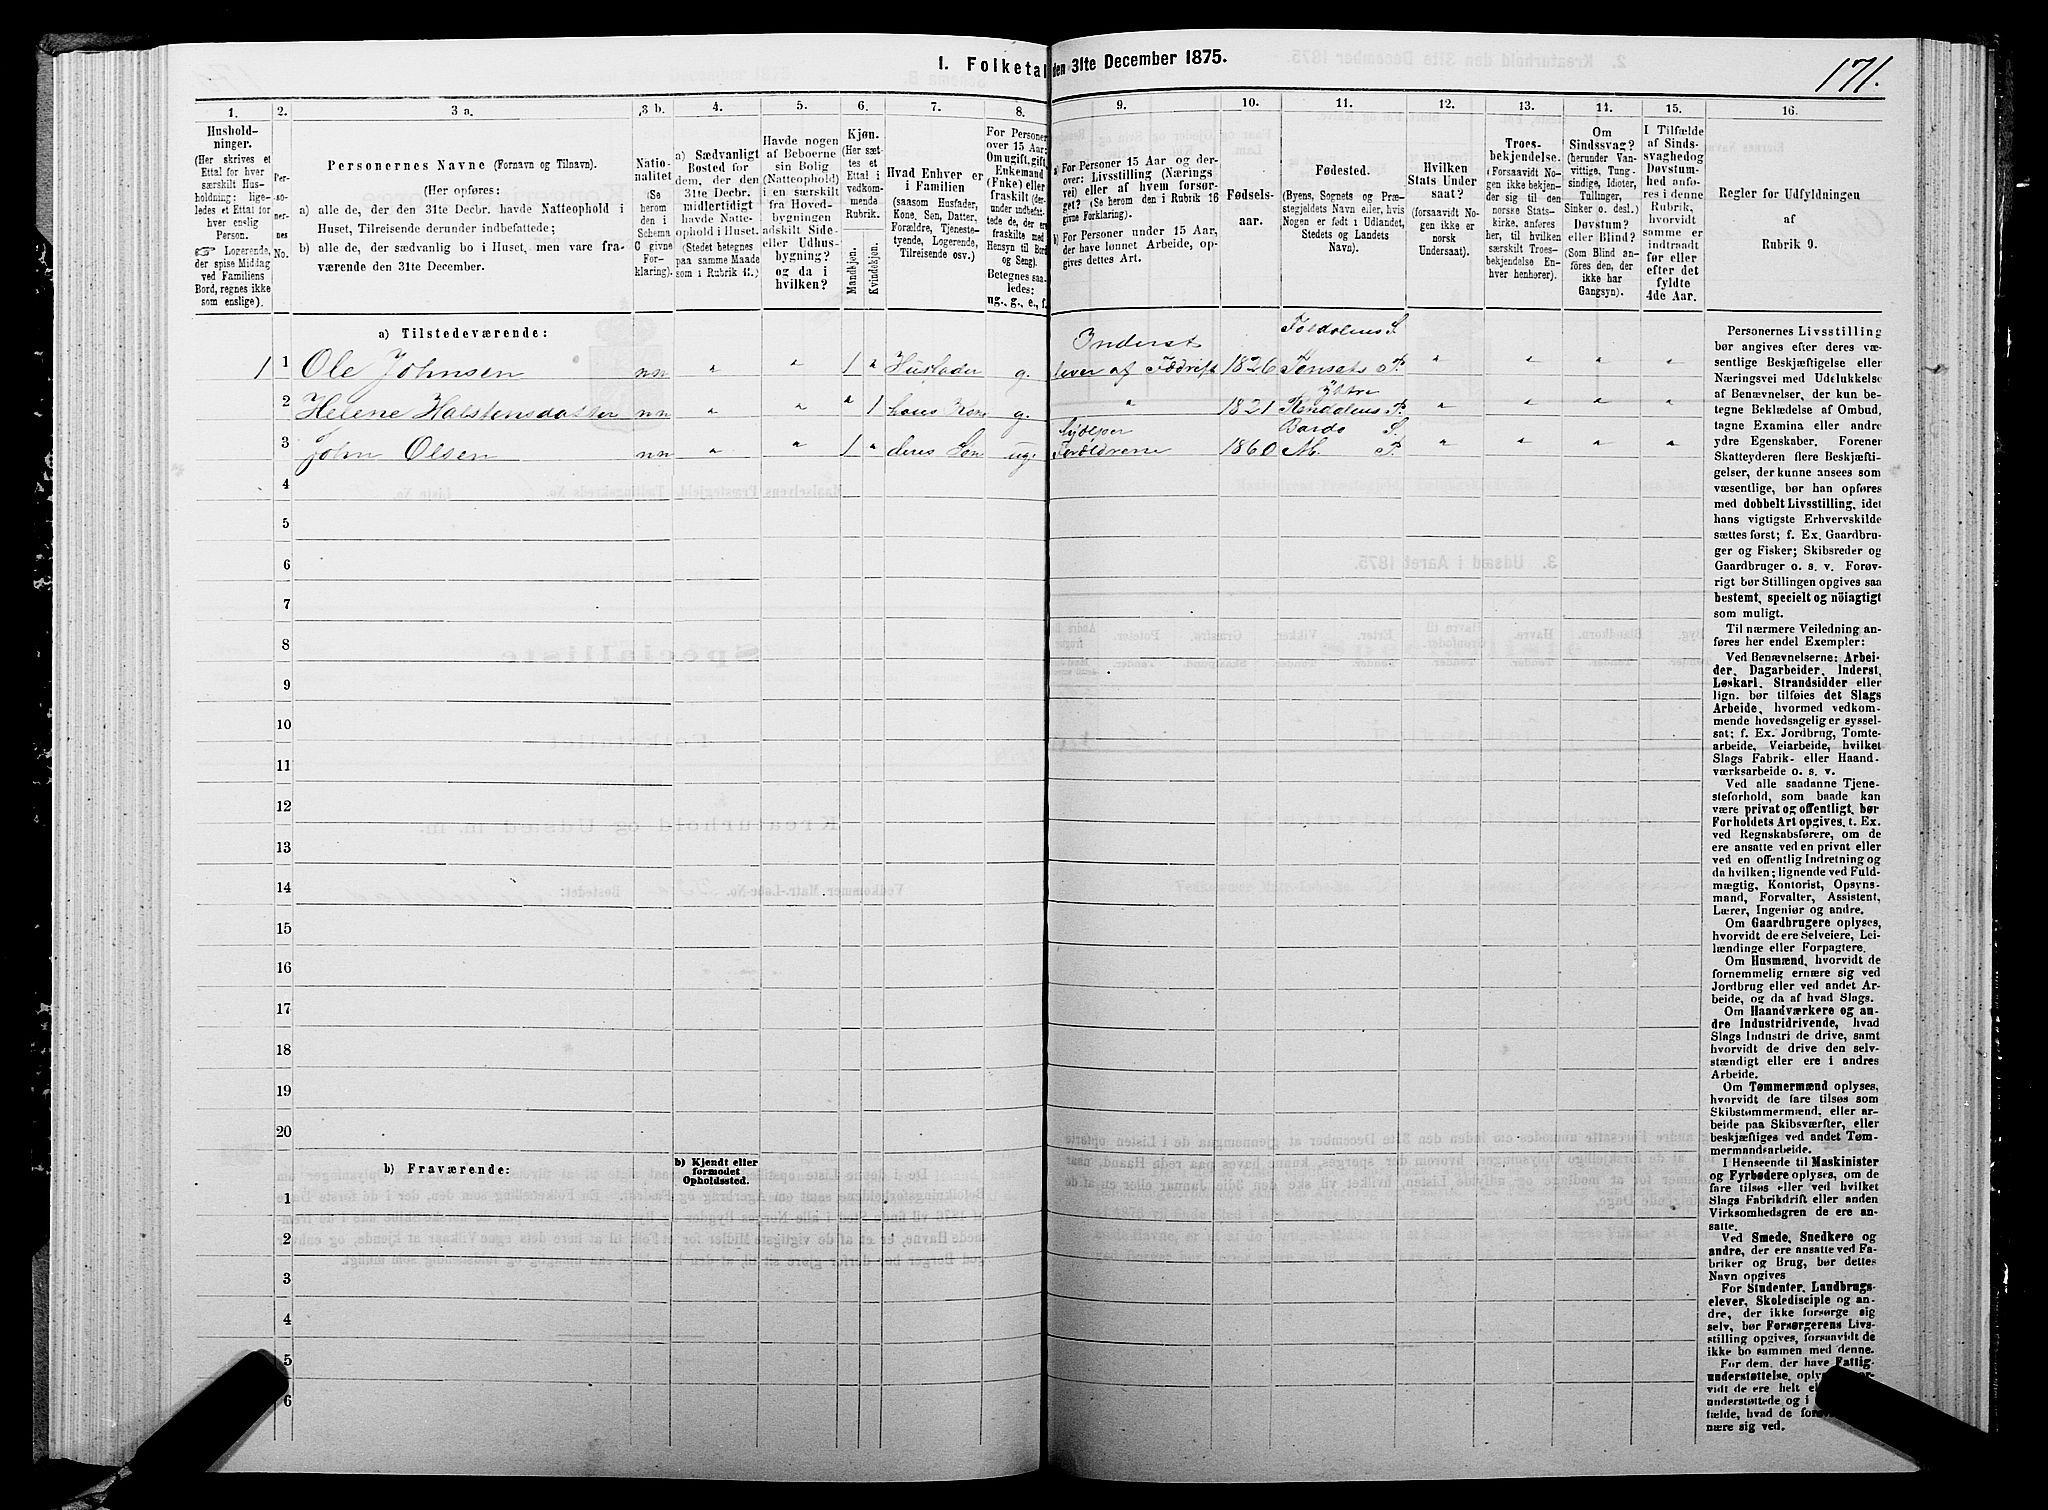 1. Folketal den 31te December 1875.
171.
1.
2.
3 a.
3 b.
4.
5.
6.
7.
8.
9.
10.
11.
12.
13.
14.
15.
16.
Hushold-
ninger.
(Her skrives et
Ettal for hver
særskilt Hus-
holdning; lige-
ledes et Ettal for
hver enslig
Person.
☞ Logerende,
der spise Middag
ved Familiens
Bord, regnes ikke
som enslige).
Per-
so-
ner-
nes
No.
Personernes Navne (Fornavn og Tilnavn).
(Her opføres:
a) alle de, der den 31te Decbr. havde Natteophold i
Huset, Tilreisende derunder indbefattede;
b) alle de, der sædvanlig bo i Huset, men vare fra-
værende den 31te December.
Natio-
nalitet
(Se
herom
den i
Schema
C givne
For-
klaring).
a) Sædvanligt
Bosted for
dem, der den
31te Decbr.
midlertidigt
havde Natte-
ophold i Huset.
(Stedet betegnes
paa samme Maade
som i Rubrik 11.)
Havde nogen
af Beboerne
sin Bolig
(Natteophold)
i en særskilt
fra Hoved-
bygningen
adskilt Side-
eller Udhus-
bygning?
og da i
hvilken?
Kjøn.
(Her sæt-
tes et
Ettal i
vedkom-
mende
Rubrik.
Mandkjøn.
Kvindekjøn.
Hvad Enhver er
i Familien
(saasom Husfader,
Kone, Søn, Datter,
Forældre, Tjeneste-
tyende, Logerende,
Tilreisende osv.)
For Personer
over 15 Aar:
Om ugift, gift,
Enkemand
(Enke) eller
fraskilt (der-
under indbefat-
tede de, der ere
fraskilte med
Hensyn til Bord
og Seng).
Betegnes saa-
ledes:
ug., g., e., f.
a) For Personer 15 Aar og der-
over: Livsstilling (Nærings-
vei) eller af hvem forsør-
get? (Se herom den i Rubrik 16
givne Forklaring).
b) For Personer under 15 Aar,
der have lønnet Arbeide, op-
gives dettes Art.
Fødsels-
aar.
Fødested.
(Byens, Sognets og Præ-
stegjeldets Navn eller, hvis
Nogen er født i Udlandet,
Stedets og Landets
Navn).
Hvilken
Stats Under
saat?
(forsaavidt No-
gen ikke er
norsk
Undersaat).
Troes-
bekjendelse.
(Forsaavidt No-
gen ikke bekjen-
der sig til den
norske Stats-
kirke, anføres
her, til hvilken
særskilt Troes-
bekjendelse En-
hver henhorer).
Om
Sindssvag?
(herunder Van-
vittige, Tung-
sindige, Idioter,
Tullinger,
Sinker o. desl.)
Døvstum?
eller Blind?
(Som Blind an-
føres den, der
ikke har
Gangsyn).
I Tilfælde
af Sinds-
svaghed og
Døvstum-
hed anfø-
res i denne
Rubrik,
hvorvidt
samme er
indtraadt
før eller
efter det
fyldte
4de Aar.
Regler for Udfyldningen
af
Rubrik 9.
a) Tilstedeværende:
Inderst
Foldalens S.
1 1 Ole Johnsen nn " " 1 " Husfader g. lever af Fødrift 1826 Tønsets P. " " " "
Yttre
2 Helene Halstensdatter nn " " " 1 hans Kone g. " 1821 Rendalens P. " " " "
hjelper
Bardo S.
3 John Olsen nn " " 1 " deres Søn ug. Forældrene 1860 M. P. " " " "
4
5
6
7
8
9
10
11
12
13
14
15
16
17
18
19
20
b) Fraværende:
b) Kjendt eller
formodet
Opholdssted.
1
2
3
4
5
6
Personernes Livsstilling
bør angives efter deres væ-
sentlige Beskjæftigelse eller
Næringsvei med Udelukkelse
af Benævnelser, der kun be-
tegne Beklædelse af Ombud,
tagne Examina eller andre
ydre Egenskaber. Forener
Skatteyderen flere Beskjæfti-
gelser, der kunne ansees som
væsentlige, bør han opføres
med dobbelt Livsstilling, idet
hans vigtigste Erhvervskilde
sættes først; f. Ex. Gaardbru-
ger og Fisker; Skibsreder og
Gaardbruger o. s. v. Forøv-
rigt bør Stillingen opgives saa
bestemt, specielt og nöiagtigt
som muligt.
Til nærmere Veiledning an-
føres her endel Exempler:
Ved Benævnelserne: Arbei-
der, Dagarbeider, Inderst,
Løskarl, Strandsidder eller
lign. bør tilføies det Slags
Arbeide, hvormed vedkom-
mende hovedsagelig er syssel-
sat; f. Ex. Jordbrug, Tomte-
arbeide, Veiarbeide, hvilket
Slags Fabrik- eller Haand-
værksarbeide o. s. v.
Ved alle saadanne Tjene-
steforhold, som baade kan
være privat og offentligt, bør
Forholdets Art opgives, t. Ex.
ved Regnskabsførere, om de
ere ansatte ved en privat eller
ved en offentlig Indretning og
da hvilken; lignende ved Fuld-
mægtig, Kontorist, Opsyns-
mand, Forvalter, Assistent,
Lærer, Ingeniør og andre.
Om Gaardbrugere oplyses,
hvorvidt de ere Selveiere, Lei-
lændinge eller Forpagtere.
Om Husmænd, hvorvidt de
fornemmelig ernære sig ved
Jordbrug eller ved andet Ar-
beide, og da af hvad Slags.
Om Haandværkere og an-
dre Industridrivende, hvad
Slags Industri de drive, samt
hvorvidt de drive den selv-
stændigt eller ere i andres
Arbeide.
Om Tømmermænd oplyses,
hvorvidt de fare tilsøs som
Skibstømmermænd, eller ar-
beide paa Skibsværfter, eller
beskjæftiges ved andet Tøm-
mermandsarbeide.
I Henseende til Maskinister
og Fyrbødere oplyses, om de
fare tilsøs eller ved hvilket
Slags Fabrikdrift eller anden
Virksomhedsgren de ere an-
satte.
Ved Smede, Snedkere og
andre, der ere ansatte ved Fa-
briker og Brug, bør dettes
Navn opgives
For Studenter, Landbrugs-
elever, Skoledisciple og an-
dre, der ikke forsørge sig
selv, bør Forsørgerens Livs-
stilling opgives, forsaavidt de
ikke bo sammen med denne.
For dem, der have Fattig-
understøttelse, oply
vidt de ere helt el
understøttede og i
fælde, hvad de
nære sig ved.